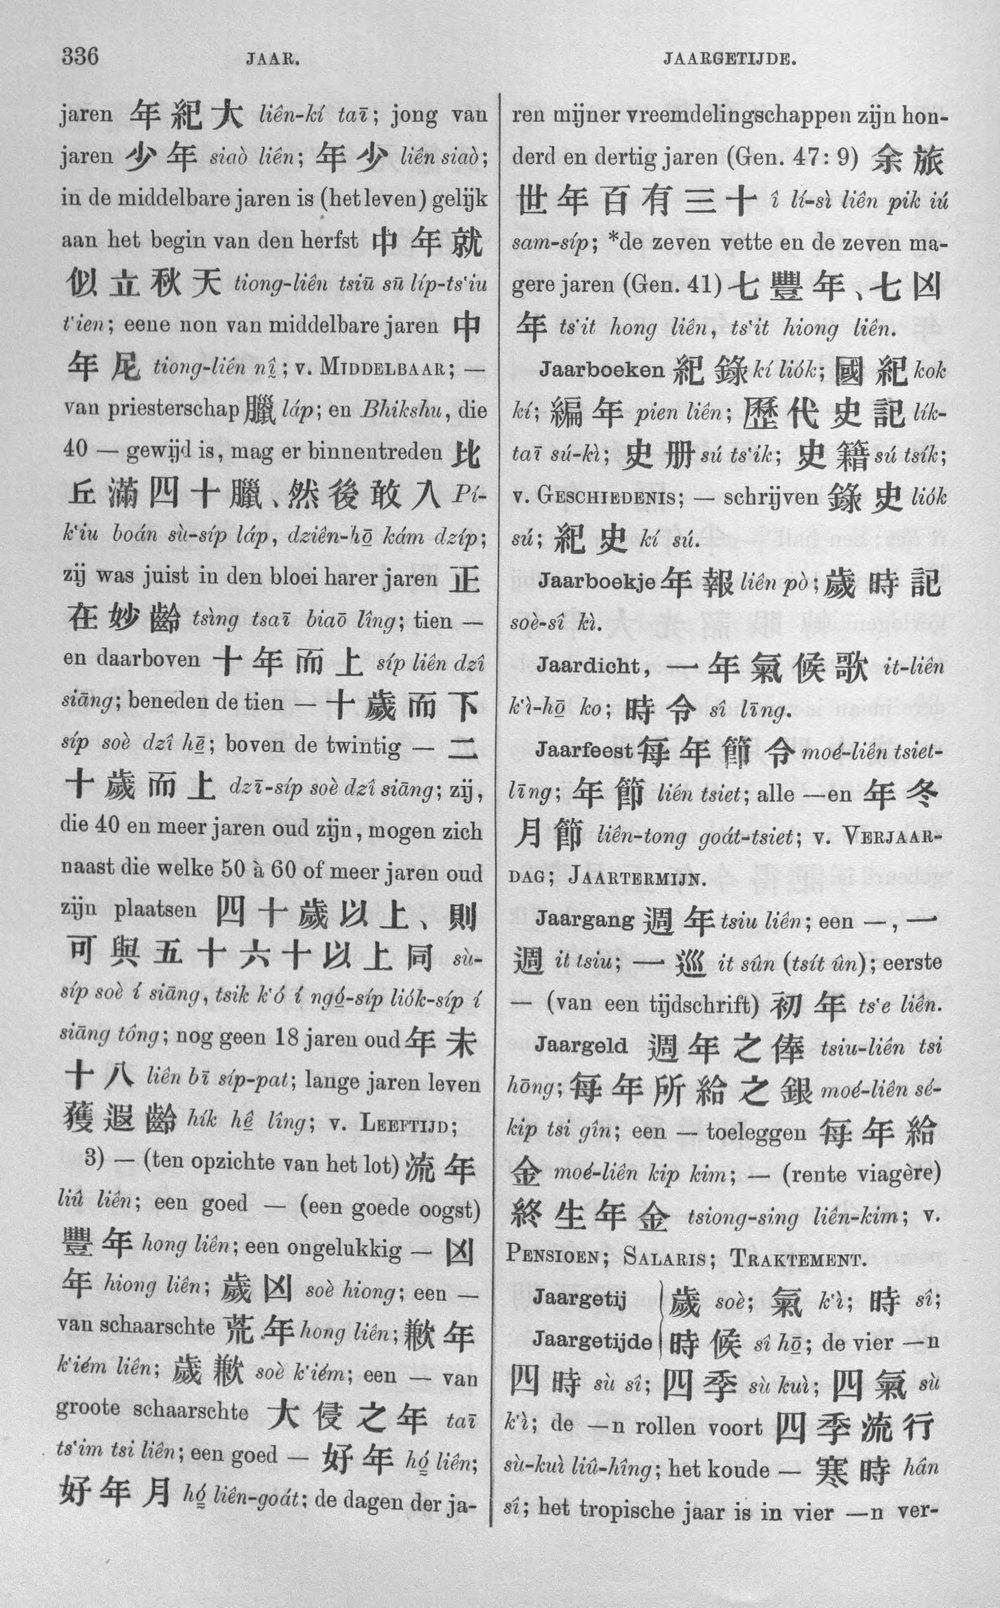 336 JAAR. JAARGETIJDE.
jaren 年紀大 liên-kí taī; jong van
jaren 少年 siaò liên; 年少 liên siaò;
in de middelbare jaren is (het leven) gelijk
aan het begin van den herfst 中年就
似立秋天 tiong-liên tsiū sū líp-ts‘iu
t‘ien; eene non van middelbare jaren 中
年尼 tiong-liên nî; v. MIDDELBAAR; —
van priesterschap 臘 láp; en Bhikshu, die
40 — gewijd is, mag er binnentreden 比
丘滿四十臘、然後敢入 Pí-
k‘iu boán sù-síp láp, dziên-hō kám dzíp;
zij was juist in den bloei harer jaren 正
在妙齡 tsìng tsaī biaō lîng; tien —
en daarboven 十年而上 síp liên dzî
siāng; beneden de tien — 十歲而下
síp soè dzî hē; boven de twintig — 二
十歲而上 dzī-síp soè dzî siāng; zij,
die 40 en meer jaren oud zijn, mogen zich
naast die welke 50 à 60 of meer jaren oud
zijn plaatsen 四十歲以上、則
可與五十六十以上同 sù-
síp soè í siāng, tsik k‘ó í ngó-síp liók-síp í
siāng tông; nog geen 18 jaren oud 年未
十八 liên bī síp-pat; lange jaren leven
獲遐齡 hík hê lîng; v. LEEFTIJD;
3) — (ten opzichte van het lot) 流年
liû liên; een goed — (een goede oogst)
豐年 hong liên; een ongelukkig — 凶
年 hiong liên; 歲凶 soè hiong; een —
van schaarschte 荒年 hong liên; 歉年
k‘iém liên; 歲歉 soè k‘iém; een — van
groote schaarschte 大侵之年 taī
ts‘im tsi liên; een goed — 好年 hó liên;
好年月 hó liên-goát; de dagen der ja-
ren mijner vreemdelingschappen zijn hon-
derd en dertig jaren (Gen. 47: 9) 余旅
世年百有三十 î lí-sì liên pik iú
sam-síp; *de zeven vette en de zeven ma-
gere jaren (Gen. 41) 七豐年、七凶
年 ts‘it hong liên, ts‘it hiong liên.
Jaarboeken 紀錄 kí liók; 國紀 kok
kí; 編年 pien liên; 歷代史記 lík-
taī sú-kì; 史册 sú ts‘ik; 史籍 sú tsík;
v. GESCHIEDENIS; — schrijven 錄史 liók
sú; 紀史 kí sú.
Jaarboekje 年報 liên pò; 歲時記
soè-sî kì.
Jaardicht, 一年氣候歌 it-liên
k‘ì-hō ko; 時令 sî līng.
Jaarfeest 每年節令 moé-liên tsiet-
līng; 年節 liên tsiet; alle —en 年冬
月節 liên-tong goát-tsiet; v. VERJAAR-
DAG; JAARTERMIJN.
Jaargang 週年 tsiu liên; een —, 一
週 it tsiu; 一巡 it sûn (tsít ûn); eerste
— (van een tijdschrift) 初年 ts‘e liên.
Jaargeld 週年之俸 tsiu-liên tsi
hōng; 每年所給之銀 moé-liên sé-
kip tsi gîn; een — toeleggen 每年給
金 moé-liên kip kim; — (rente viagère)
終生年金 tsiong-sing liên-kim; v.
PENSIOEN; SALARIS; TRAKTEMENT.
Jaargetij 歲 soè; 氣 k‘ì; 時 sî;
Jaargetijde 時候 sî hō; de vier —n
四時 sù sî; 四季 sù kuì; 四氣 sù
k‘ì; de —n rollen voort 四季流行
sù-kuì liû-hîng; het koude — 寒時 hân
sî; het tropische jaar is in vier —n ver-